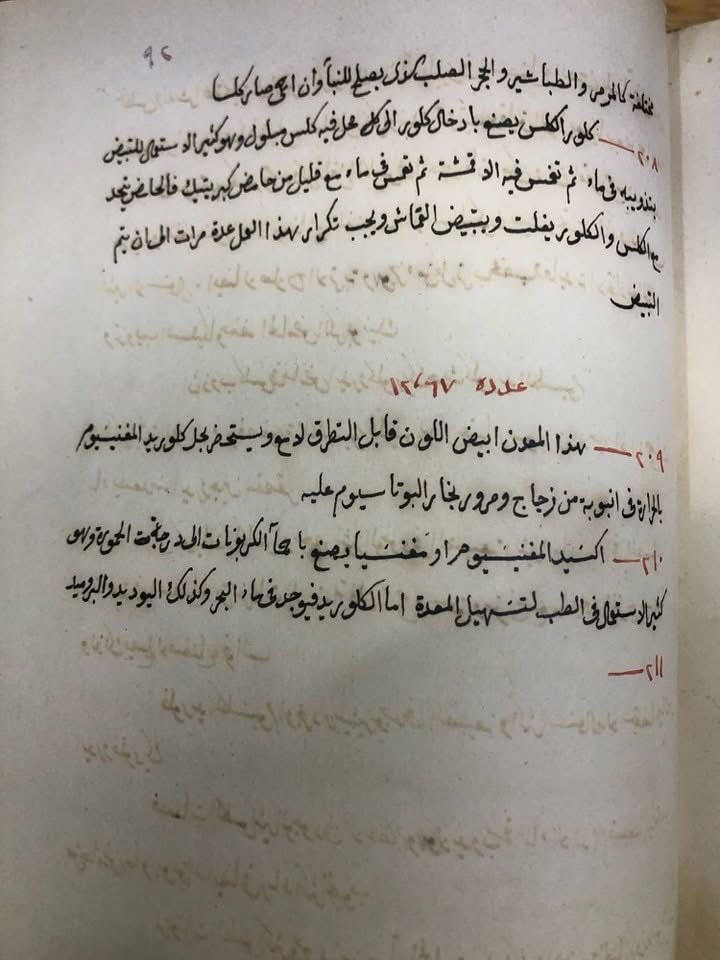 ٩٤
مختلفة كالمرمر والطباشير والحجر الصلب الذى يصلح للبنأ وان احمى صار كلسا
٢٠٨ — كلورا كلس يصنع بادخال كلور الى كل محل فيه كلس مبلول وهو كثير الاستعمال للتبيض
بتذويبه فى ماء ثم تغمس فيه الاقمشة ثم تغمس فى ماء مع قليل من حامض كبريتيك فالحامض يتحد
مع الكلس والكلور يفلت ويبيض القماش ويجب تكرار هذا العمل عدة مرات الى ان يتم
التبيض
عدده ١٢،٦٧
٢٠٩ — هذا المعدن ابيض اللون قابل التطرق لامع ويستحضر بحل كلوريد المغنيسيوم
بالحرارة فى انبوبة من زجاج ومرور بخار البوتاسيوم عليه
٢١٠ — اكسيد المغنيسيوم او مغنسيا يصنع باحمآ الكربونات الى درجة الحمرة وهو
كثير الاستعمال فى الطب لتسهيل المعدة اما الكلوريد فيوجد فى ماء البحر وكذلك اليوديد والبروميد
٢١١ —